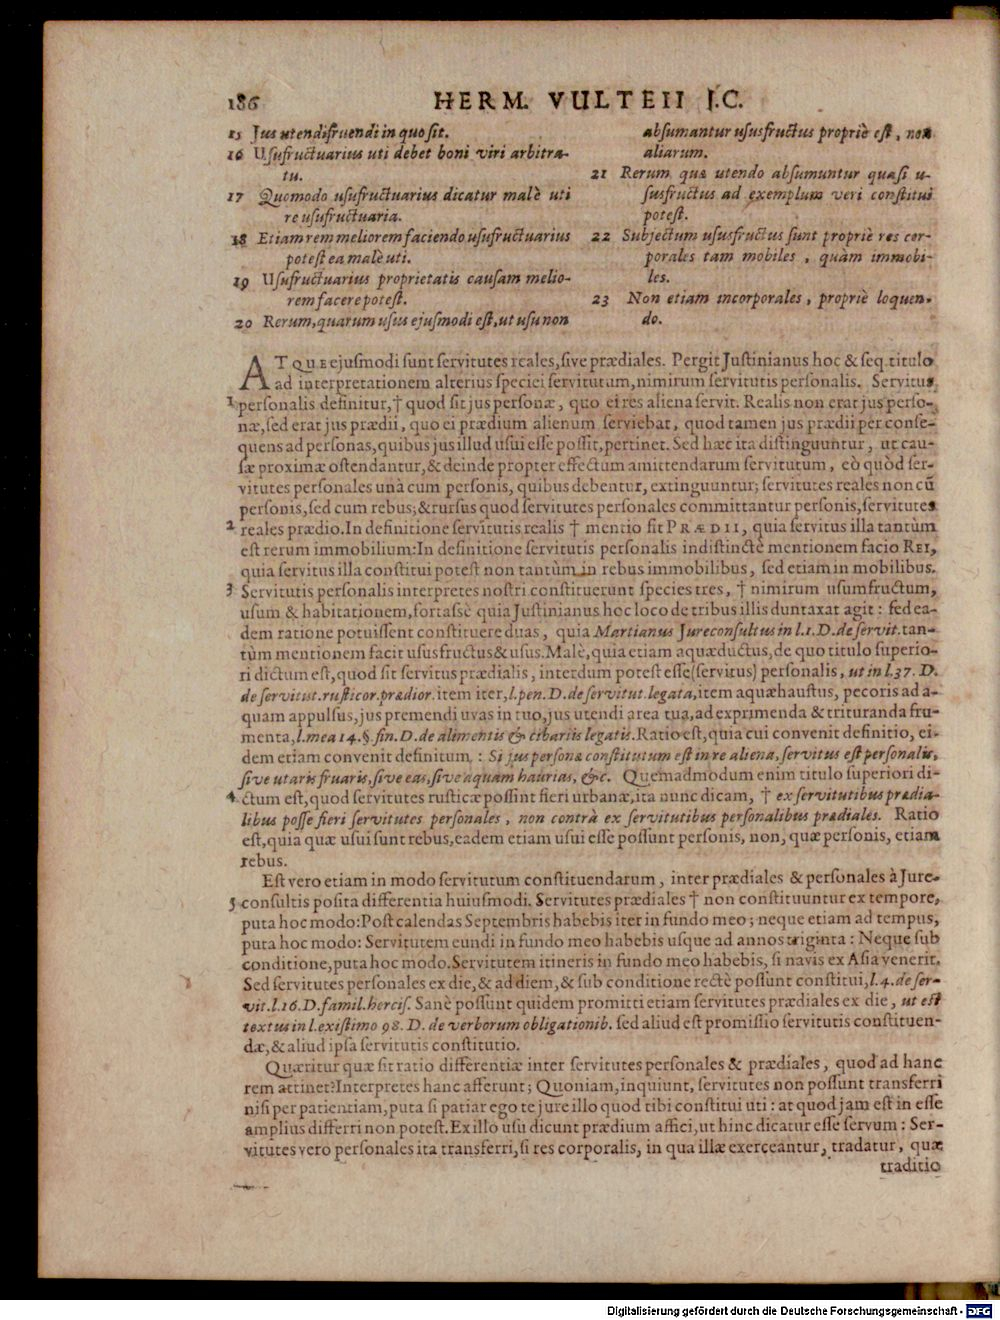 186 HERM. VULTEII J.C.
15 Jus utendifruendi in quo sit.
16 Usufructuarius uti debet boni viri arbitra-
tu.
17 Quomodo usufructuarius dicatur malè uti
re usufructuaria.
18 Etiam rem meliorem faciendo usufructuarius
potest ea malè uti.
19 Usufructuarius proprietatis causam melio-
rem facere potest.
20 Rerum, quarum usus ejusmodi est, ut usu non
absumantur ususfructus propriè est, non
aliarum.
21 Rerum quæ utendo absumuntur quasi u-
susfructus ad exemplum veri constitui
potest.
22 Subjectum ususfructus sunt propriè res cor-
porales tam mobiles, quàm immobi-
les.
23 Non etiam incorporales, propriè loquen-
do.
ATQUE ejusmodi sunt servitutes reales, sive prædiales. Pergit Justinianus hoc & seq. titulo
ad interpretationem alterius speciei servitutum, nimirum servitutis personalis. Servitus
1 personalis definitur, † quod sit jus personæ, quo ei res aliena servit. Realis non erat jus perso-
næ, sed erat jus prædii, quo ei prædium alienum serviebat, quod tamen jus prædii per conse-
quens ad personas, quibus jus illud usui esse possit, pertinet. Sed hæc ita distinguuntur, ut cau-
sæ proximæ ostendantur, & deinde propter effectum amittendarum servitutum, eò quòd ser-
vitutes personales unà cum personis, quibus debentur, extinguuntur; servitutes reales non cū
personis, sed cum rebus; & rursus quod servitutes personales committantur personis, servitutes
2 reales prædio. In definitione servitutis realis † mentio fit PRÆDII, quia servitus illa tantùm
est rerum immobilium: In definitione servitutis personalis indistinctè mentionem facio REI,
quia servitus illa constitui potest non tantùm in rebus immobilibus, sed etiam in mobilibus.
3 Servitutis personalis interpretes nostri constituerunt species tres, † nimirum usumfructum,
usum & habitationem, fortassè quia Justinianus hoc loco de tribus illis duntaxat agit: sed ea-
dem ratione potuissent constituere duas, quia Martianus Jureconsultus in l.1. D. de servit. tan-
tùm mentionem facit ususfructus & usus. Malè, quia etiam aquæductus, de quo titulo superio-
ri dictum est, quod sit servitus prædialis, interdum potest esse (servitus) personalis, ut in l.37. D.
de servitut. rusticor. prædior. item iter, l. pen. D. de servitut. legata, item aquæhaustus, pecoris ad a-
quam appulsus, jus premendi uvas in tuo, jus utendi area tua, ad exprimenda & trituranda fru-
menta, l. mea 14. §. fin. D. de alimentis & cibariis legatis. Ratio est, quia cui convenit definitio, ei-
dem etiam convenit definitum,: Si jus personæ constitutum est in re aliena, servitus est personalis,
sive utaris fruaris, sive eas, sive aquam haurias, &c. Quemadmodum enim titulo superiori di-
4 ctum est, quod servitutes rusticæ possint fieri urbanæ, ita nunc dicam, † ex servitutibus prædia-
libus posse fieri servitutes personales, non contrà ex servitutibus personalibus prædiales. Ratio
est, quia quæ usui sunt rebus, eadem etiam usui esse possunt personis, non, quæ personis, etiam
rebus.
Est vero etiam in modo servitutum constituendarum, inter prædiales & personales à Jure-
5 consultis posita differentia huiusmodi. Servitutes prædiales † non constituuntur ex tempore,
puta hoc modo: Post calendas Septembris habebis iter in fundo meo; neque etiam ad tempus,
puta hoc modo: Servitutem eundi in fundo meo habebis usque ad annos triginta: Neque sub
conditione, puta hoc modo. Servitutem itineris in fundo meo habebis, si navis ex Asia venerit.
Sed servitutes personales ex die, & ad diem, & sub conditione rectè possunt constitui, l.4. de ser-
vit. l.16. D. famil. hercis. Sanè possunt quidem promitti etiam servitutes prædiales ex die, ut est
textus in l. existimo 98. D. de verborum obligationib. sed aliud est promissio servitutis constituen-
dæ, & aliud ipsa servitutis constitutio.
Quæritur quæ sit ratio differentiæ inter servitutes personales & prædiales, quod ad hanc
rem attinet? Interpretes hanc afferunt; Quoniam, inquiunt, servitutes non possunt transferri
nisi per patientiam, puta si patiar ego te jure illo quod tibi constitui uti: at quod jam est in esse
amplius differri non potest. Ex illo usu dicunt prædium affici, ut hinc dicatur esse servum: Ser-
vitutes vero personales ita transferri, si res corporalis, in qua illæ exerceantur, tradatur, quæ
traditio
Digitalisierung gefördert durch die Deutsche Forschungsgemeinschaft - DFG